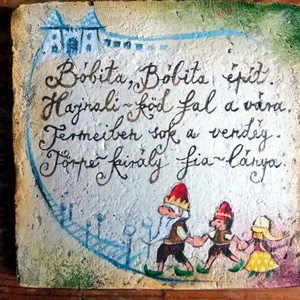 Bóbita, Bóbita épít.
Hajnali-köd fal a vára.
Termeiben sok a vendég.
Törpe-király fia-lánya.